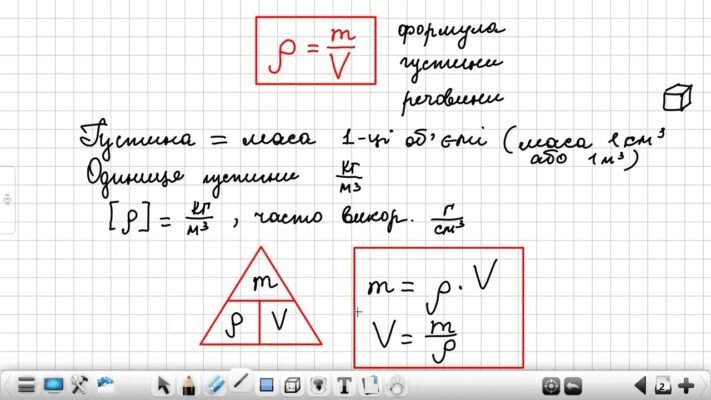 ρ = m/V
формула
густини
речовини
Густина = маса 1-ці об'ємі (маса 1см³
або 1м³)
Одиниця густини кг/м³
[ρ] = кг/м³, часто викор. г/см³
m
ρ V
m = ρ · V
V = m/ρ
T
2